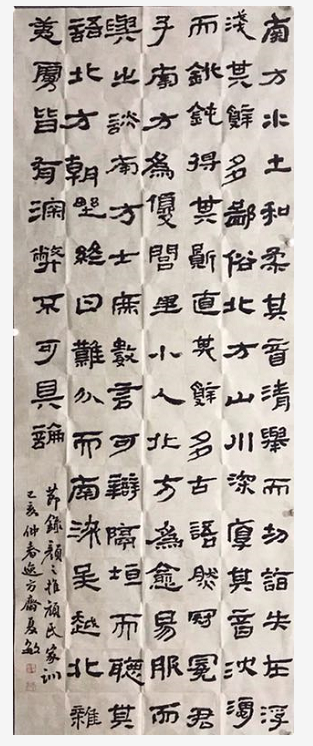 南方水土和柔其音清舉而切詣失在浮
淺其辭多鄙俗北方山川深厚其音沈濁
而鈋鈍得其質直其辭多古語然冠冕君
子南方為優閭里小人北方為愈易服而
與之談南方士庶數言可辯隔垣而聽其
語北方朝野終日難分而南染吳越北雜
夷虜皆有深弊不可具論
節錄顏之推顏氏家訓
己亥仲春逸方齋夏敏